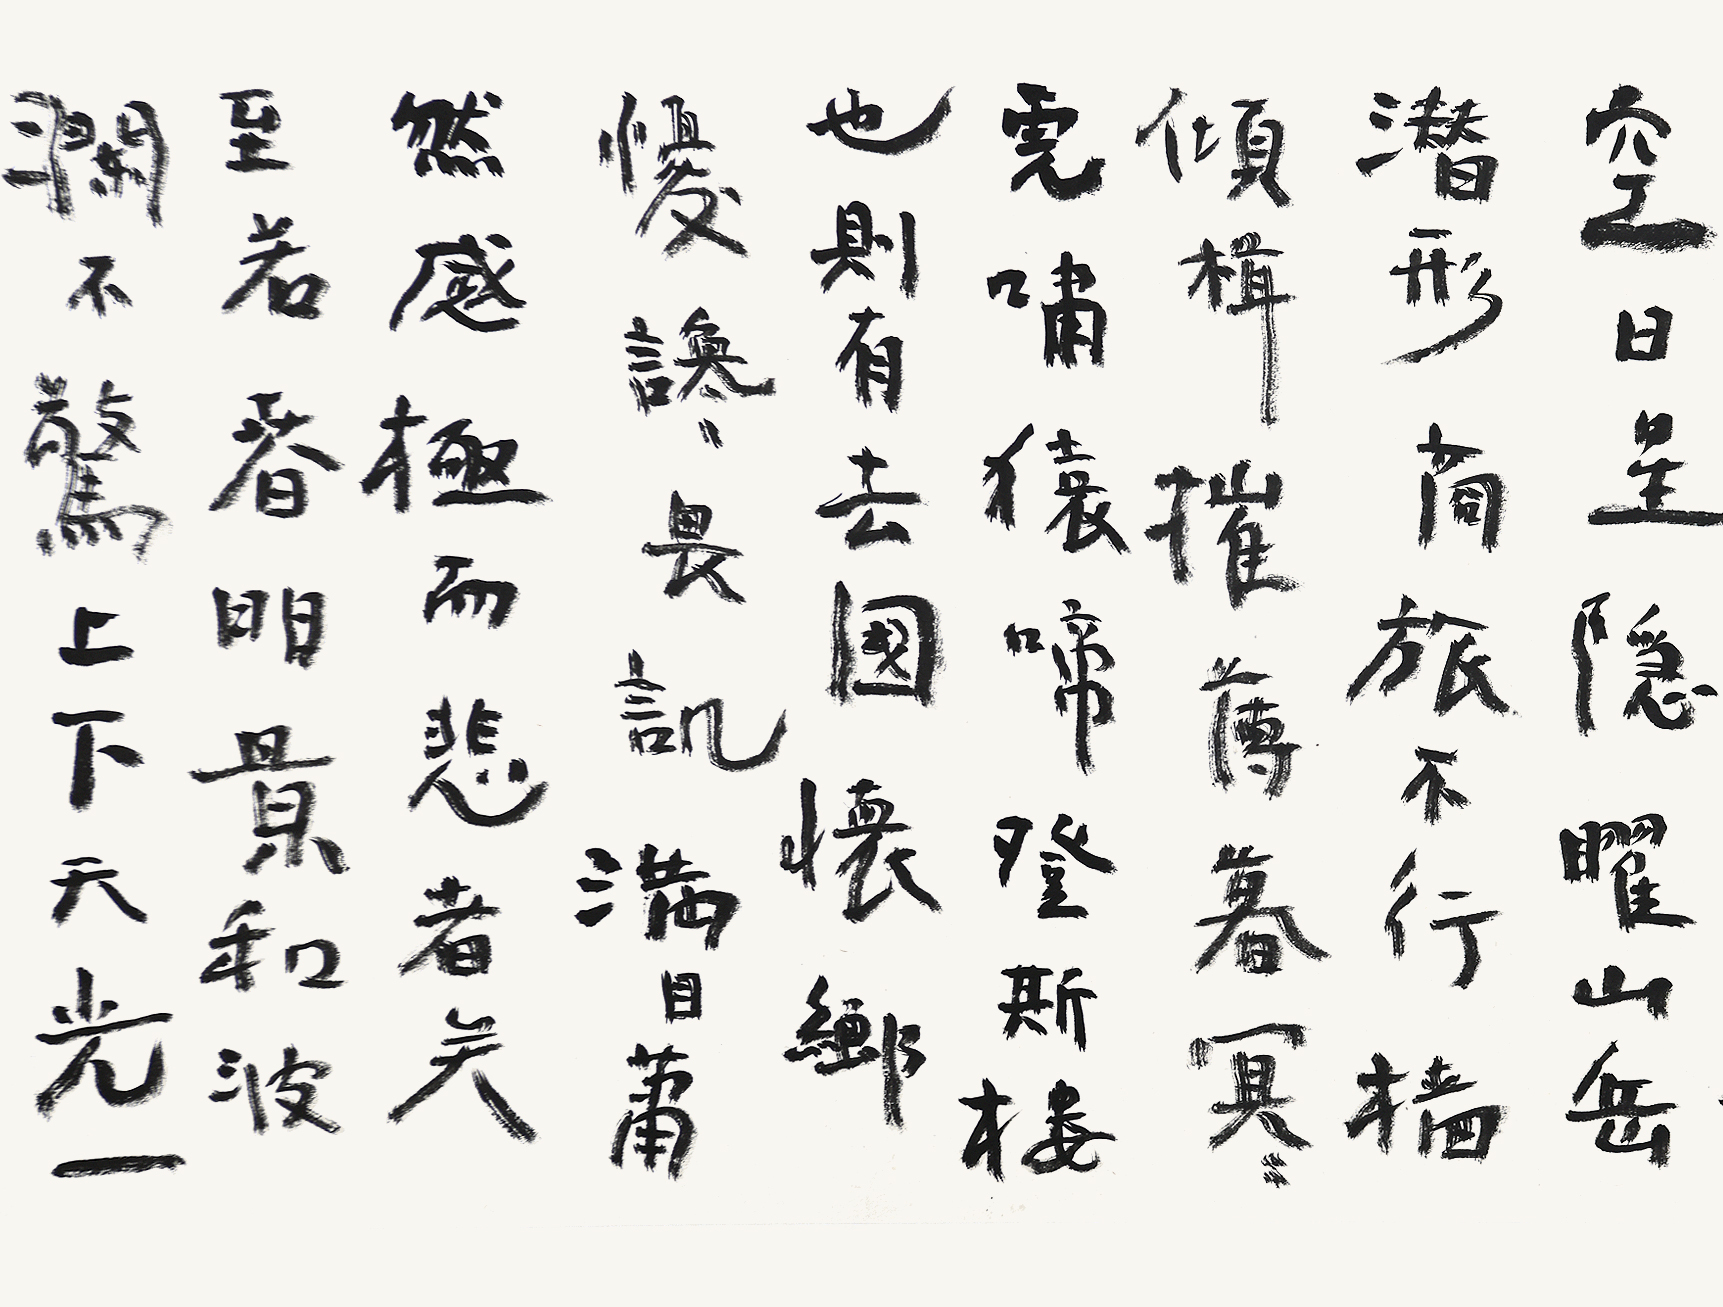 空日星隐曜山岳
潜形商旅不行檣
傾楫摧薄暮冥々
虎嘯猿啼登斯樓
也則有去國懷鄉
懮讒畏譏滿目蕭
然感極而悲者矣
至若春明景和波
瀾不驚上下天光一